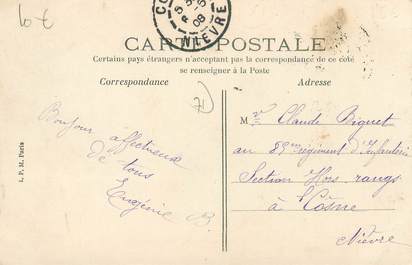 10 €
NIÈVRE
08
CARTE POSTALE
Certains pays étrangers n'acceptant pas la correspondance de ce coté
se renseigner à la Poste
Correspondance
Adresse
Bonjour affectueux
de tous
Eugénie B.
Mr Claude Biguet
au 85me régiment d'Infanterie
Section Hors rangs
à Cosne
Nièvre
I. P. M. Paris